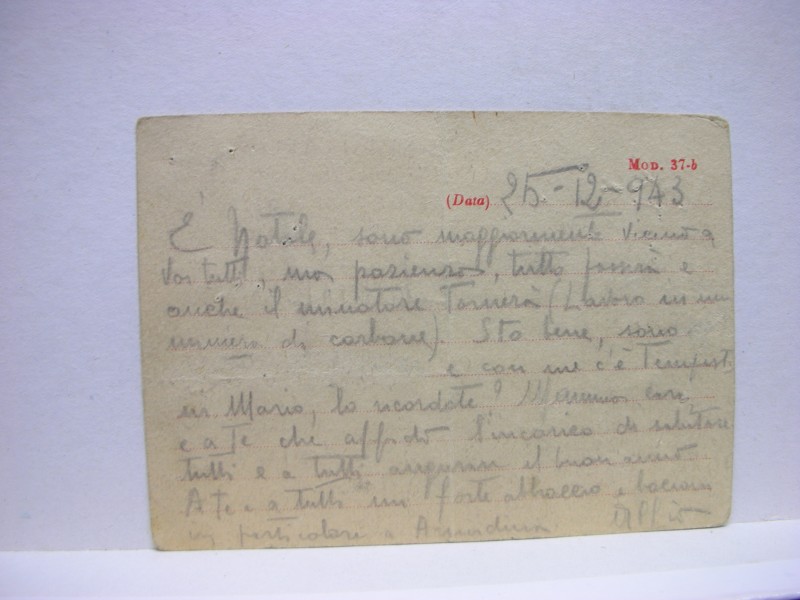 Mod. 37-b
(Data) 25-12-943
È Natale, sono maggiormente vicino a
voi tutti, ma pazienza, tutto passerà e
anche il minatore tornerà (Lavoro in una
miniera di carbone). Sto bene, sono
e con me c'è Tempesti
Mario, lo ricordate? Mamma cara,
e a Te che affido l'incarico di salutare
tutti e a tutti augurare il buon anno.
A te e a tutti un forte abbraccio e bacioni
in particolare a